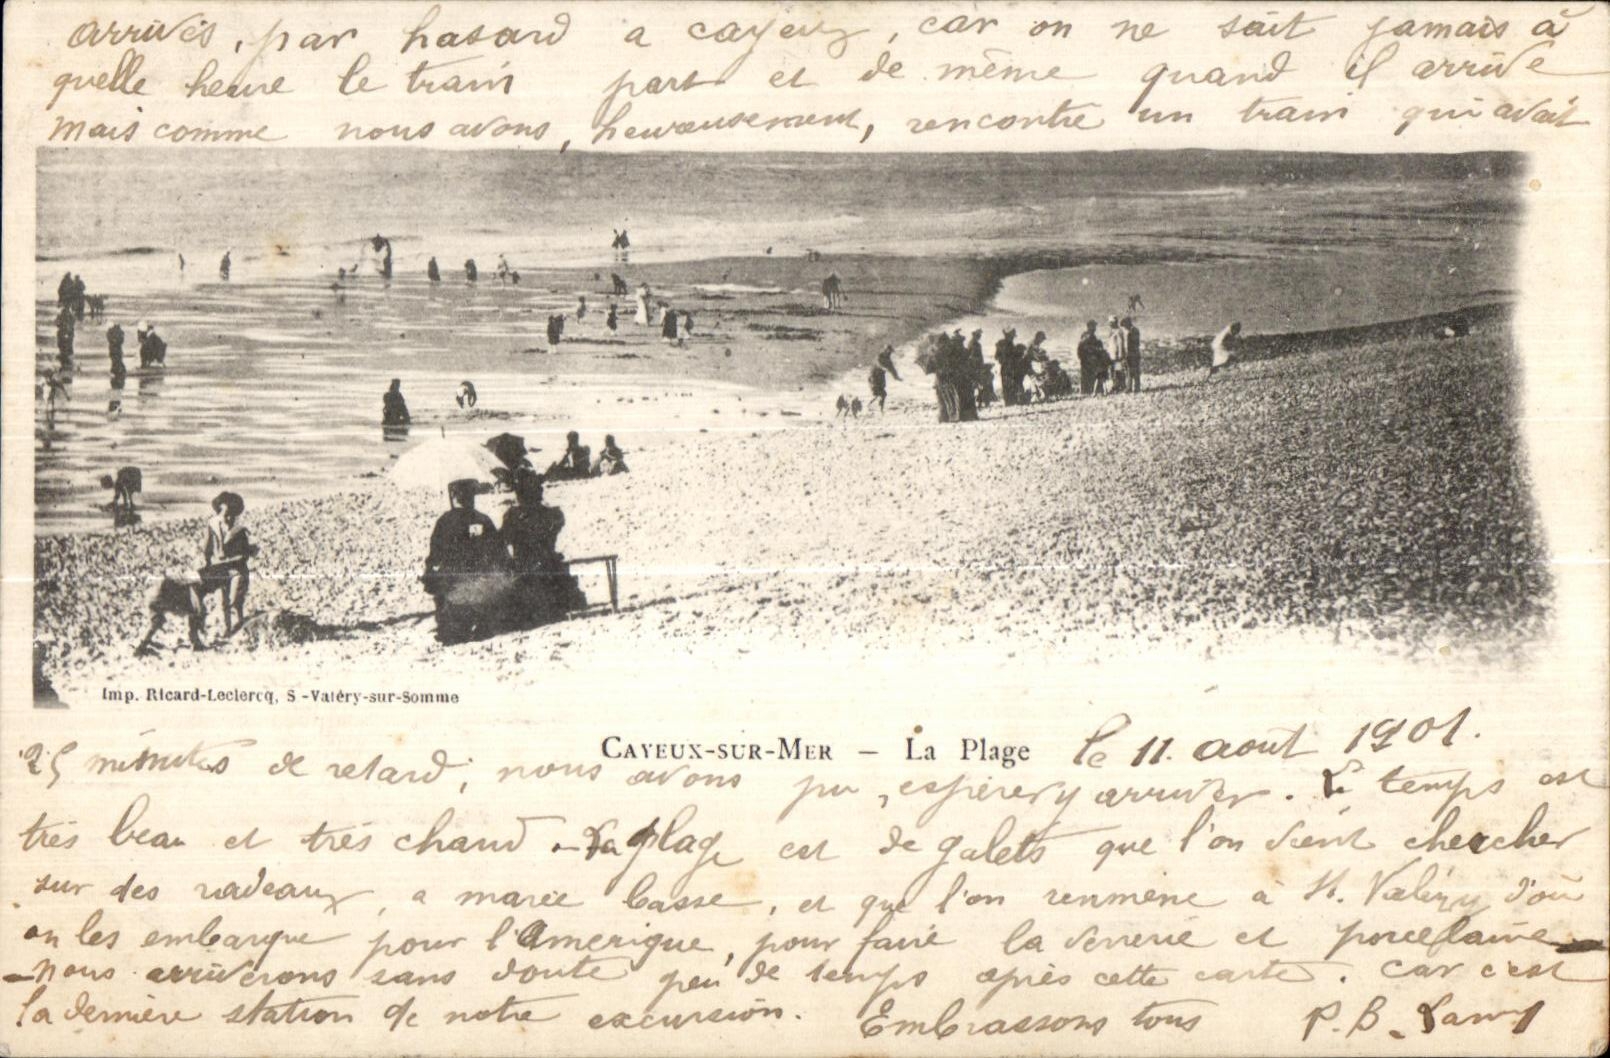 arrivés, par hasard a cayeux, car on ne sait jamais à
quelle heure le train part et de même quand il arrive
mais comme nous avons, heureusement, rencontré un train qui avait
Imp. Ricard-Leclercq, S -Valéry-sur-Somme
CAYEUX-SUR-MER — La Plage le 11. août 1901.
25 minutes de retard, nous avons pu, espérer y arriver. Le temps est
très beau et très chaud - La plage est de galets que l'on vient chercher
sur des radeaux, a marée basse, et que l'on renmène à St. Valéry d'où
on les embarque pour l'Amerique, pour faire la verrerie et porcelaine
- nous arriverons sans doute peu de temps après cette carte. car c'est
la dernière station de notre excursion. Embrassons tous P. B.